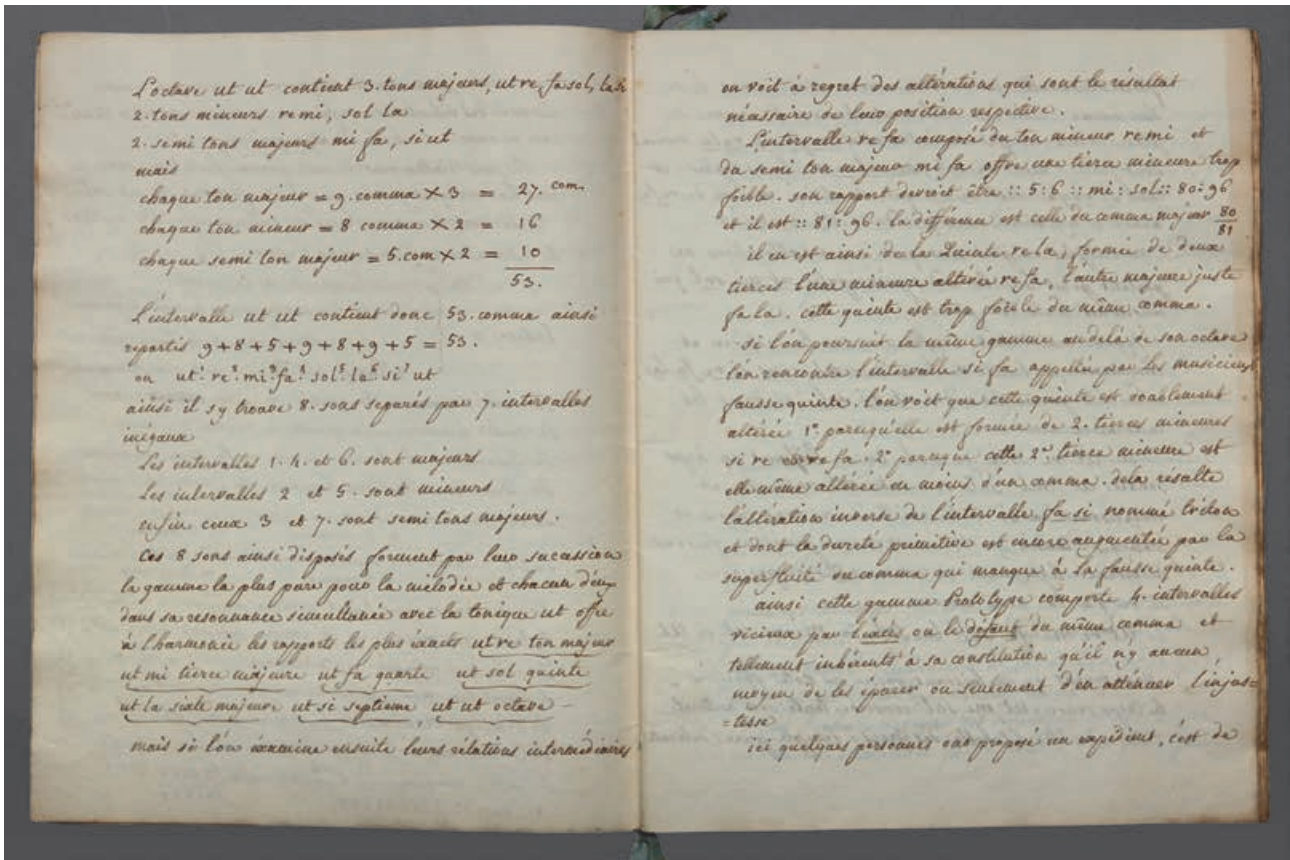 L'octave ut ut contient 3. tons majeurs, ut re, fa sol, la si
2. tons mineurs re mi, sol la
2. semi tons majeurs mi fa, si ut
mais
chaque ton majeur = 9. comma × 3 = 27. com.
chaque ton mineur = 8 comma × 2 = 16
chaque semi ton majeur = 5. com × 2 = 10
53.
L'intervalle ut ut contient donc 53. comma ainsi
repartis 9 + 8 + 5 + 9 + 8 + 9 + 5 = 53.
ou ut.¹ re.² mi.³ fa.⁴ sol.⁵ la.⁶ si⁷ ut
ainsi il s'y trouve 8. sons separés par 7. intervalles
inégaux
Les intervalles 1. 4. et 6. sont majeurs
Les intervalles 2 et 5. sont mineurs
enfin ceux 3 et 7. sont semi tons majeurs.
Ces 8 sons ainsi disposés forment par leur succession
la gamme la plus pure pour la mélodie et chacun d'eux
dans sa resonnance simultanée avec la tonique ut offre
à l'harmonie les rapports les plus éxacts ut re ton majeur
ut mi tierce majeure ut fa quarte ut sol quinte
ut la sixte majeure ut si septieme, ut ut octave –
mais si l'on éxamine ensuite leurs rélations intermédiaires
on voit à regret des altérations qui sont le résultat
nécessaire de leur position respective.
L'intervalle re fa composé du ton mineur re mi et
du semi ton majeur mi fa offre une tierce mineure trop
foible. son rapport devroit être :: 5 : 6 :: mi : sol :: 80 : 96
et il est :: 81 : 96. la différence est celle du comma majeur 80/81
il en est ainsi de la Quinte re la, formée de deux
tierces l'une mineure altérée re fa, l'autre majeure juste
fa la. cette quinte est trop foible du même comma.
si l'on poursuit la même gamme au delà de son octave
l'on rencontre l'intervalle si fa appellée par les musiciens
fausse quinte. l'on voit que cette quinte est doublement
altérée 1º. parcequ'elle est formée de 2. tierces mineures
si re et re fa. 2º parceque cette 2.de tierce mineure est
elle même altérée en moins d'un comma. delà résulte
l'altération inverse de l'intervalle fa si nommé triton
et dont la dureté primitive est encore augmentée par la
superfluité du comma qui manque à la fausse quinte.
ainsi cette gamme Prototype comporte 4. intervalles
vicieux par l'éxcès ou le défaut du même comma et
tellement inhérents à sa constitution qu'il n'y aucun
moyen de les épurer ou seulement d'en atténuer l'injus=
=tesse
ici quelques personnes ont proposé un expédient, c'est de